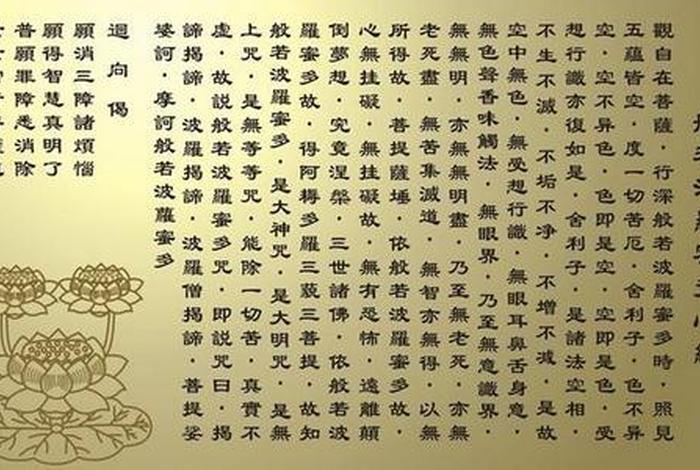 觀自在菩薩·行深般若波羅蜜多時·照見
五蘊皆空·度一切苦厄·舍利子·色不异
空·空不异色·色即是空·空即是色·受
想行識亦復如是·舍利子·是諸法空相·
不生不滅·不垢不净·不增不減·是故
空中無色·無受想行識·無眼耳鼻舌身意·
無色聲香味觸法·無眼界·乃至無意識界·
無無明·亦無無明盡·乃至無老死·亦無
老死盡·無苦集滅道·無智亦無得·以無
所得故·菩提薩埵·依般若波羅蜜多故·
心無挂礙·無挂礙故·無有恐怖·遠離顛
倒夢想·究竟涅槃·三世諸佛·依般若波
羅蜜多故·得阿耨多羅三藐三菩提·故知
般若波羅蜜多·是大神咒·是大明咒·是無
上咒·是無等等咒·能除一切苦·真實不
虛·故説般若波羅蜜多咒·即説咒曰·揭
諦揭諦·波羅揭諦·波羅僧揭諦·菩提娑
婆訶·摩訶般若波羅蜜多
迴向偈
願消三障諸煩惱
願得智慧真明了
普願罪障悉消除